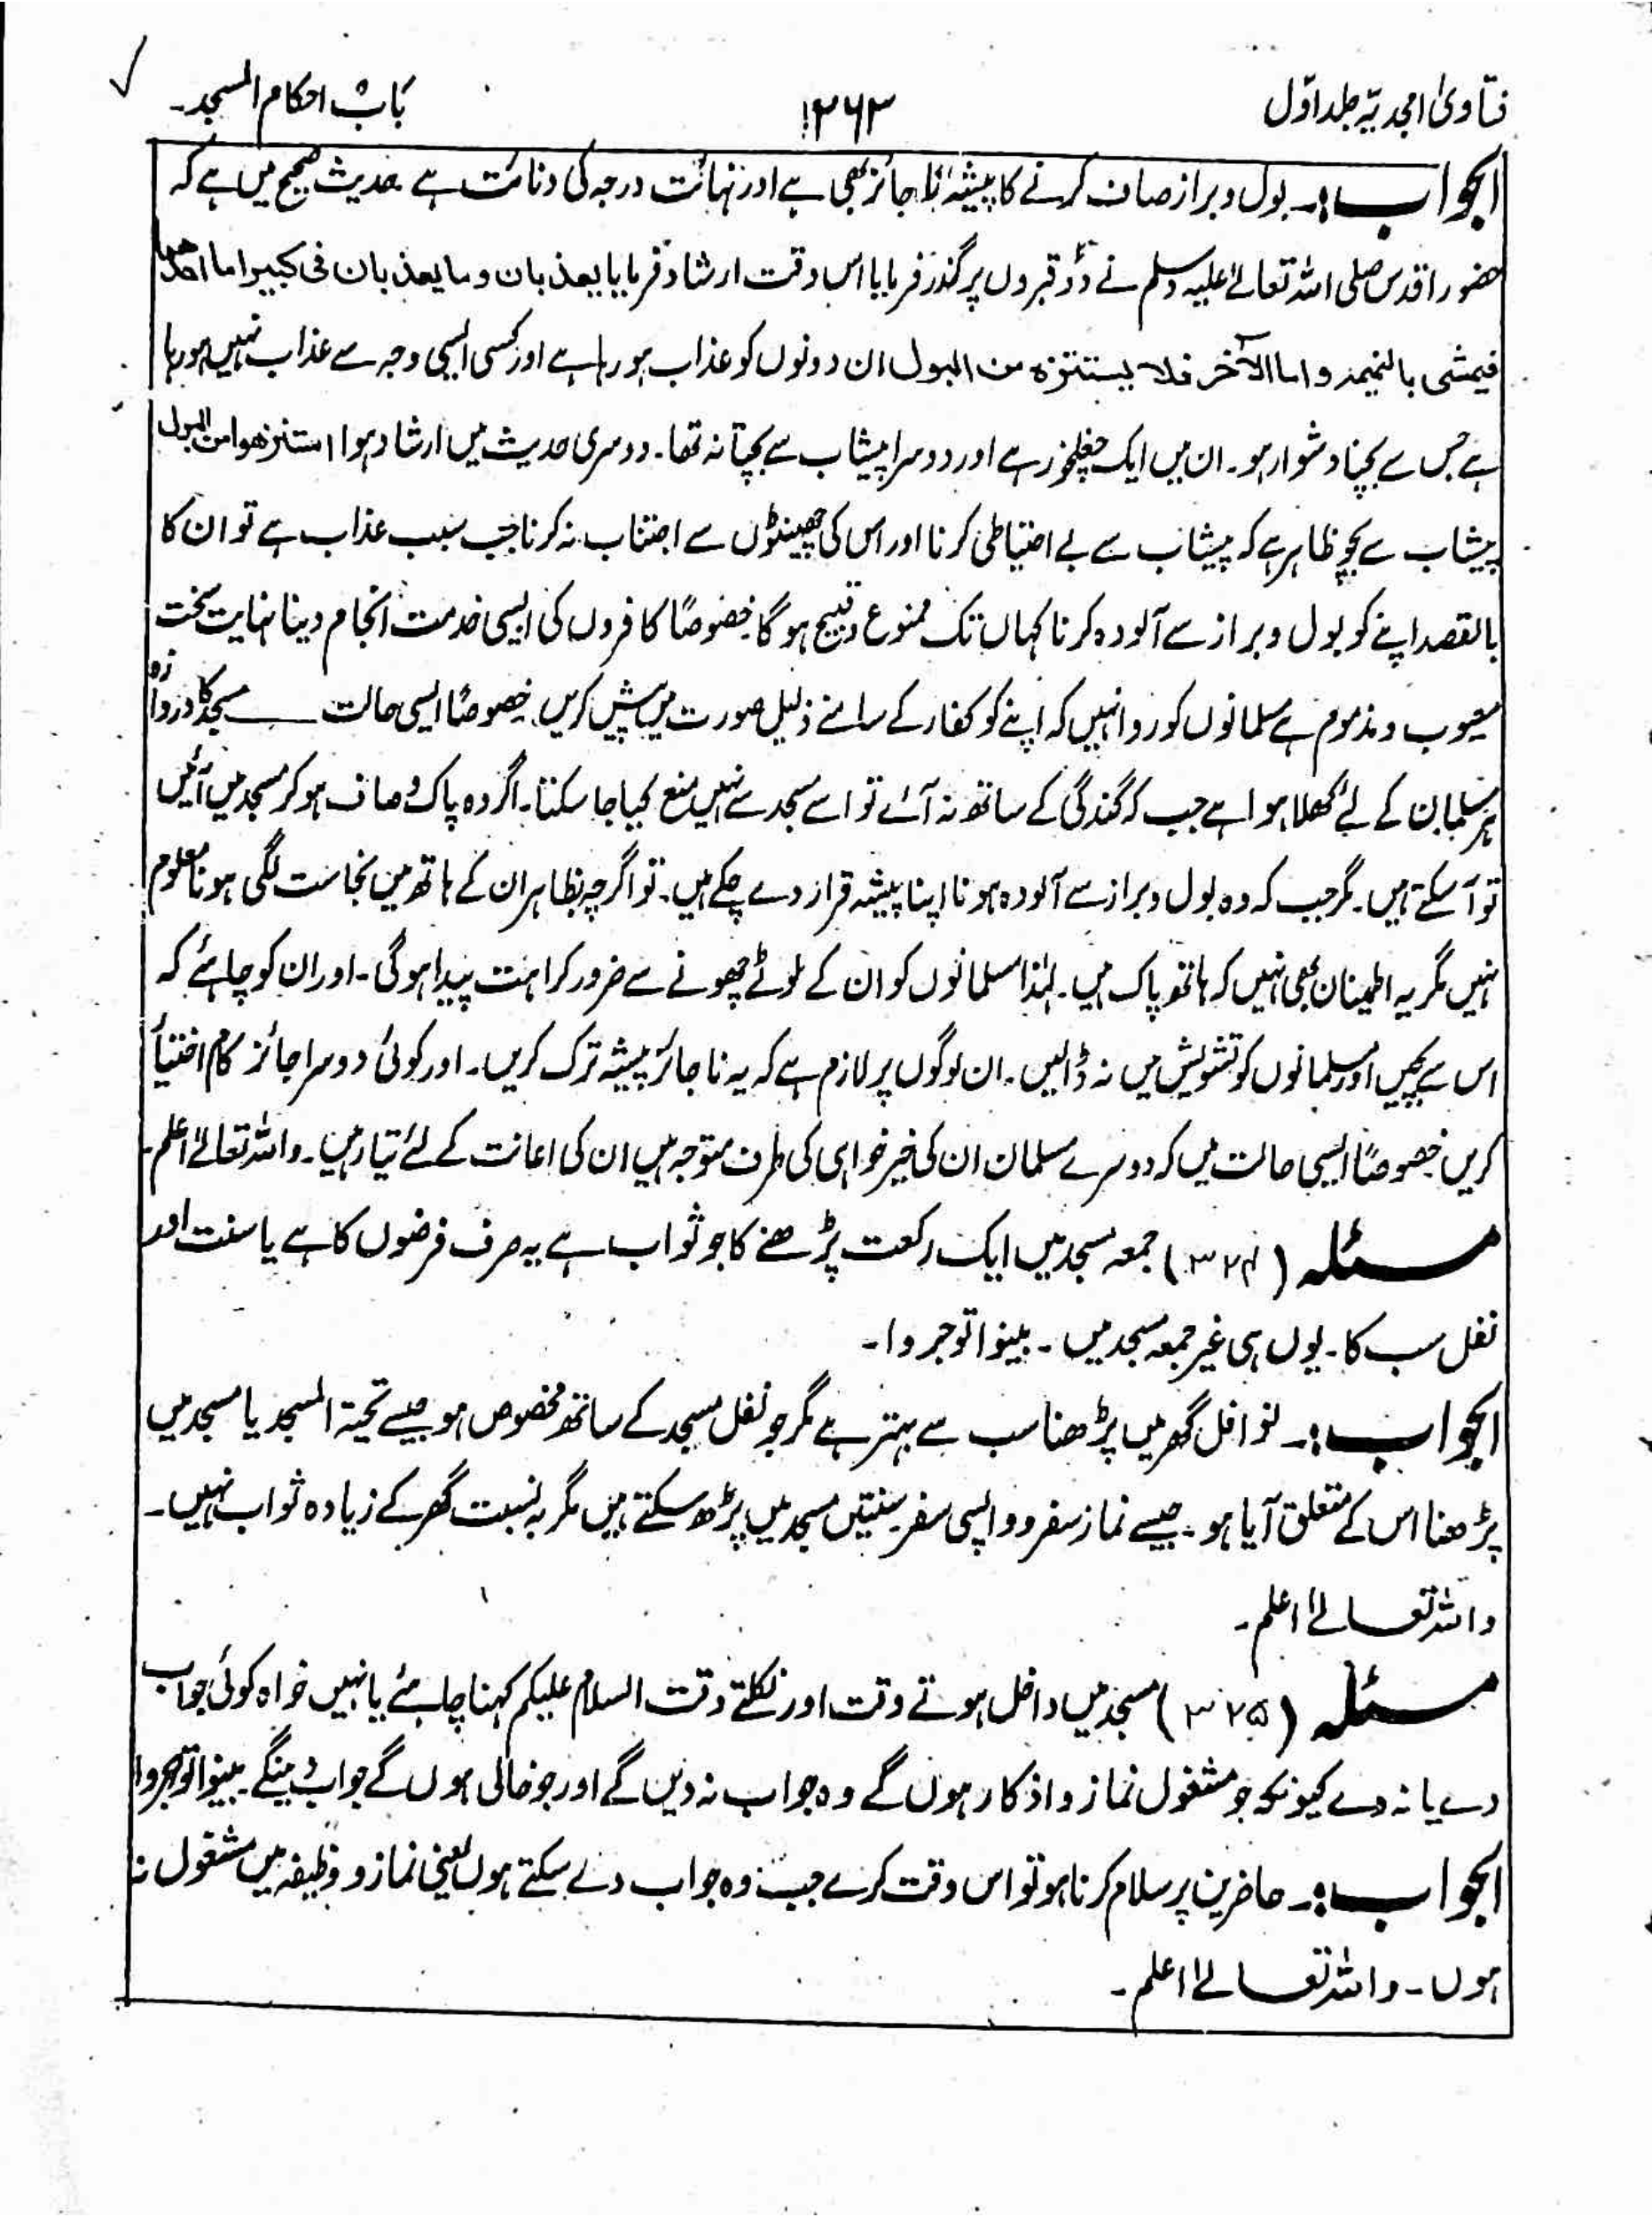 فتاویٰ امجدیہ جلد اوّل
۲۶۳
باب احکام المسجد۔
الجواب:۔ بول و براز صاف کرنے کا پیشہ ناجائز بھی ہے اور نہائت درجہ کی دنائت ہے حدیث صحیح میں ہے کہ
حضور اقدس صلی اللہ تعالےٰ علیہ وسلم نے دو قبروں پر گذر فرمایا اس وقت ارشاد فرمایا یعذبان وما یعذبان فی کبیر اما احدھما
فیمشی بالنمیمہ واما الآخر فلا یستنزہ من البول ان دونوں کو عذاب ہو رہا ہے اور کسی ایسی وجہ سے عذاب نہیں ہو رہا
ہے جس سے بچنا دشوار ہو۔ ان میں ایک چغلخور ہے اور دوسرا پیشاب سے بچتا نہ تھا۔ دوسری حدیث میں ارشاد ہوا استنزھوا من البول
پیشاب سے بچو ظاہر ہے کہ پیشاب سے بے احتیاطی کرنا اور اس کی چھینٹوں سے اجتناب نہ کرنا جب سبب عذاب ہے تو ان کا
بالقصد اپنے کو بول و براز سے آلودہ کرنا کہاں تک ممنوع و قبیح ہوگا خصوصًا کافروں کی ایسی خدمت انجام دینا نہایت سخت
معیوب و مذموم ہے مسلمانوں کو روا نہیں کہ اپنے کو کفار کے سامنے ذلیل صورت میں پیش کریں خصوصًا ایسی حالت ـــ مسجد کا دروازہ
ہر مسلمان کے لئے کھلا ہوا ہے جب کہ گندگی کے ساتھ نہ آئے تو اسے مسجد سے نہیں منع کیا جا سکتا۔ اگر وہ پاک و صاف ہو کر مسجد میں آئیں
تو آسکتے ہیں۔ مگر جب کہ وہ بول و براز سے آلودہ ہونا اپنا پیشہ قرار دے چکے ہیں۔ تو اگرچہ بظاہر ان کے ہاتھ میں نجاست لگی ہونا معلوم
نہیں مگر یہ اطمینان بھی نہیں کہ ہاتھ پاک ہیں۔ لہٰذا مسلمانوں کو ان کے لوٹے چھونے سے ضرور کراہت پیدا ہوگی۔ اور ان کو چاہئے کہ
اس سے بچیں اور مسلمانوں کو تشویش میں نہ ڈالیں۔ ان لوگوں پر لازم ہے کہ یہ ناجائز پیشہ ترک کریں۔ اور کوئی دوسرا جائز کام اختیار
کریں خصوصًا ایسی حالت میں کہ دوسرے مسلمان ان کی خیر خواہی کی طرف متوجہ ہیں ان کی اعانت کے لئے تیار ہیں۔ واللہ تعالےٰ اعلم۔
مسئلہ (۳۲۴) جمعہ مسجد میں ایک رکعت پڑھنے کا جو ثواب ہے یہ صرف فرضوں کا ہے یا سنت اور
نفل سب کا۔ یوں ہی غیر جمعہ مسجد میں۔ بینوا توجروا۔
الجواب:۔ نوافل گھر میں پڑھنا سب سے بہتر ہے مگر جو نفل مسجد کے ساتھ مخصوص ہو جیسے تحیۃ المسجد یا مسجد میں
پڑھنا اس کے متعلق آیا ہو۔ جیسے نماز سفر و واپسی سفر سنتیں مسجد میں پڑھ سکتے ہیں مگر بہ نسبت گھر کے زیادہ ثواب نہیں۔
واللہ تعالےٰ اعلم۔
مسئلہ (۳۲۵) مسجد میں داخل ہوتے وقت اور نکلتے وقت السلام علیکم کہنا چاہئے یا نہیں خواہ کوئی جواب
دے یا نہ دے کیونکہ جو مشغول نماز و اذکار ہوں گے وہ جواب نہ دیں گے اور جو خالی ہوں گے جواب دینگے۔ بینوا توجروا
الجواب:۔ حاضرین پر سلام کرنا ہو تو اس وقت کرے جب وہ جواب دے سکتے ہوں یعنی نماز و وظیفہ میں مشغول نہ
ہوں۔ واللہ تعالےٰ اعلم۔